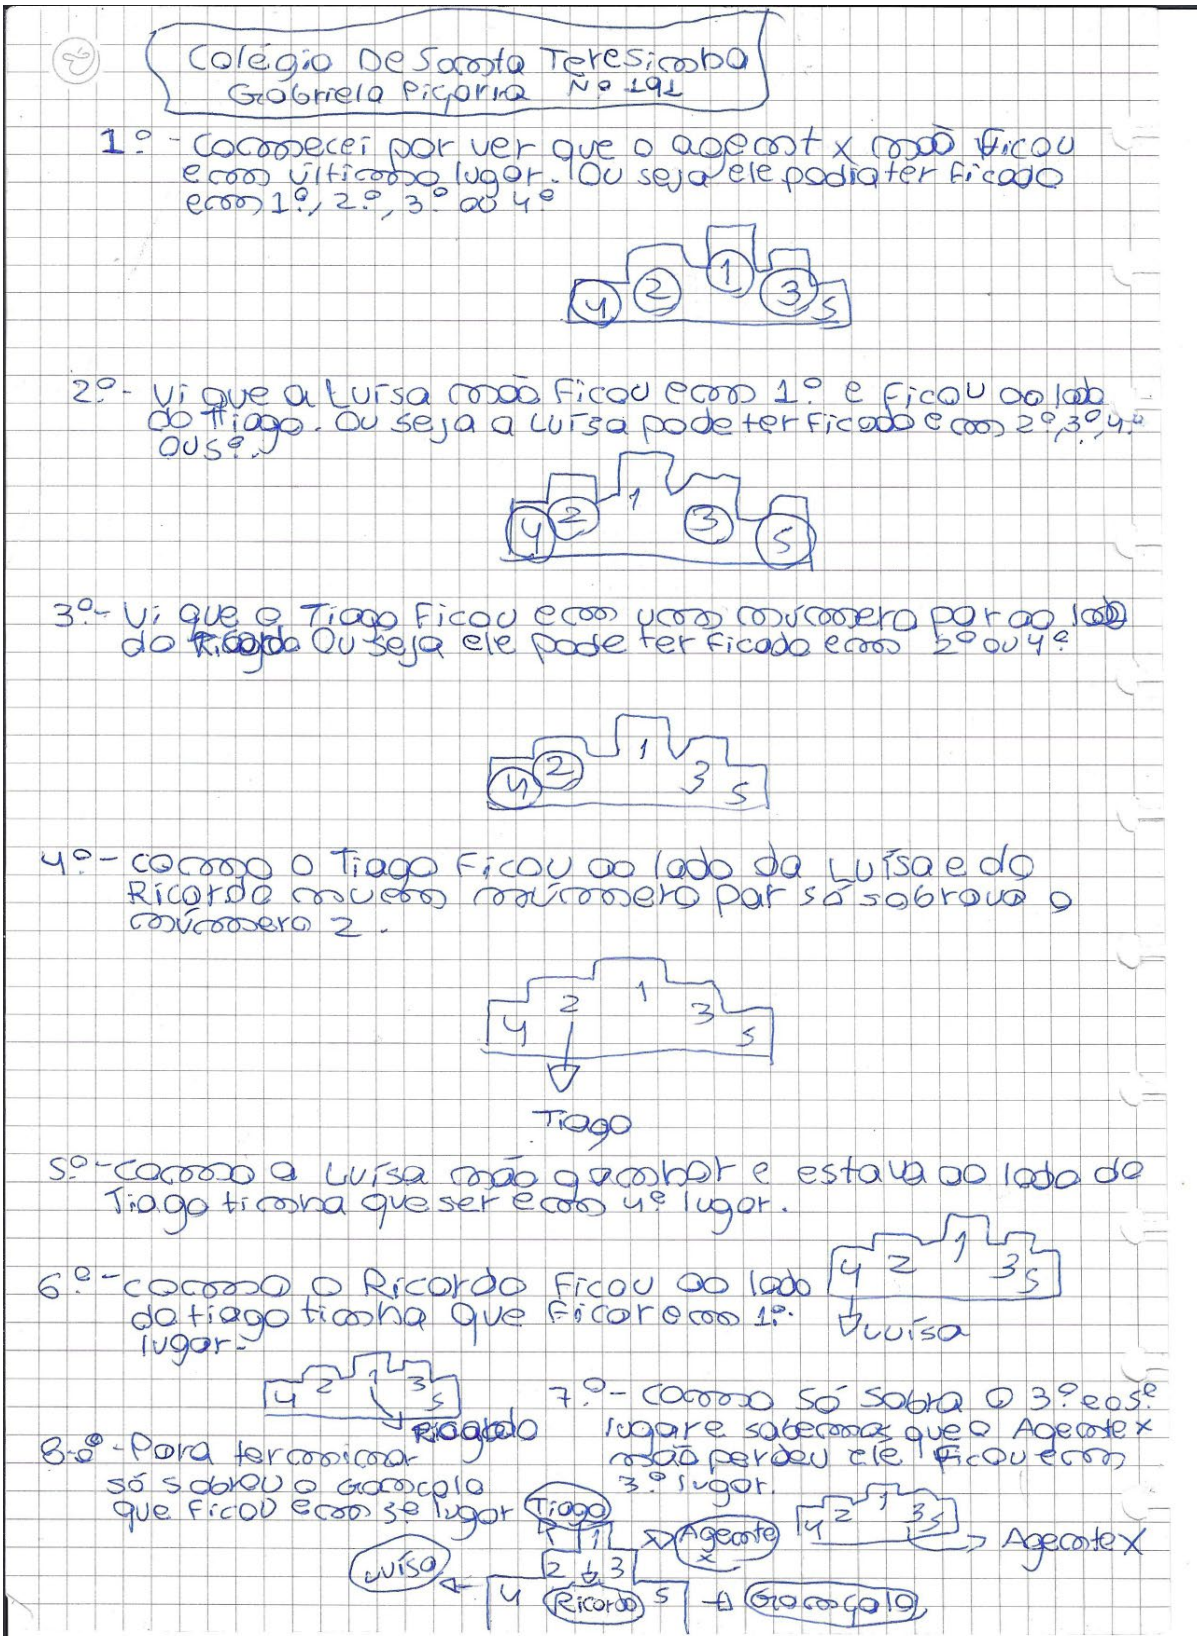 Colégio De Santa Teresinha
Gabriela Piçarra Nº 191
1º - Comecei por ver que o agent x não ficou
em último lugar. Ou seja ele podia ter ficado
em 1º, 2º, 3º ou 4º
4 2 1 3 5
2º - Vi que a Luísa não ficou em 1º e ficou ao lado
do Tiago. Ou seja a Luísa pode ter ficado em 2º, 3º, 4º
ou 5º.
4 2 1 3 5
3º - Vi que o Tiago ficou em um número par ao lado
do Ricardo Ou seja ele pode ter ficado em 2º ou 4º
4 2 1 3 5
4º - como o Tiago ficou ao lado da Luísa e do
Ricardo nuem número par só sobrava o
número 2.
4 2 1 3 5
Tiago
5º - como a Luísa não ganhor e estava ao lado do
Tiago tinha que ser em 4º lugar.
4 2 1 3 5
Luísa
6º - como o Ricardo ficou ao lado
do tiago tinha que ficar em 1º.
lugar.
4 2 1 3 5
Ricardo
7º - como só sobra o 3º e o 5º
lugar e sabemos que o Agente x
não perdeu ele ficou em
3º lugar.
4 2 1 3 5
Agente X
8º - Para terminar
só sobrou o Gonçalo
que ficou em 5º lugar
Tiago
1
Agente x
2 3
Luísa
4
Ricardo
5
Gonçalo